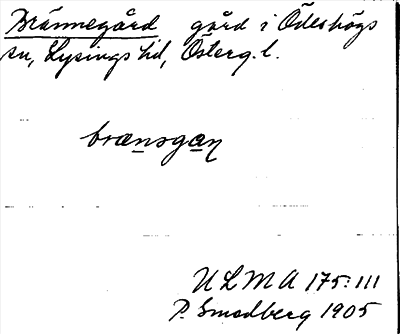 Brännegård gård i Ödeshögs
sn, Lysings hd, Österg. l.
brænsgaŋ
ULMA 175:111
P. Smedberg 1905